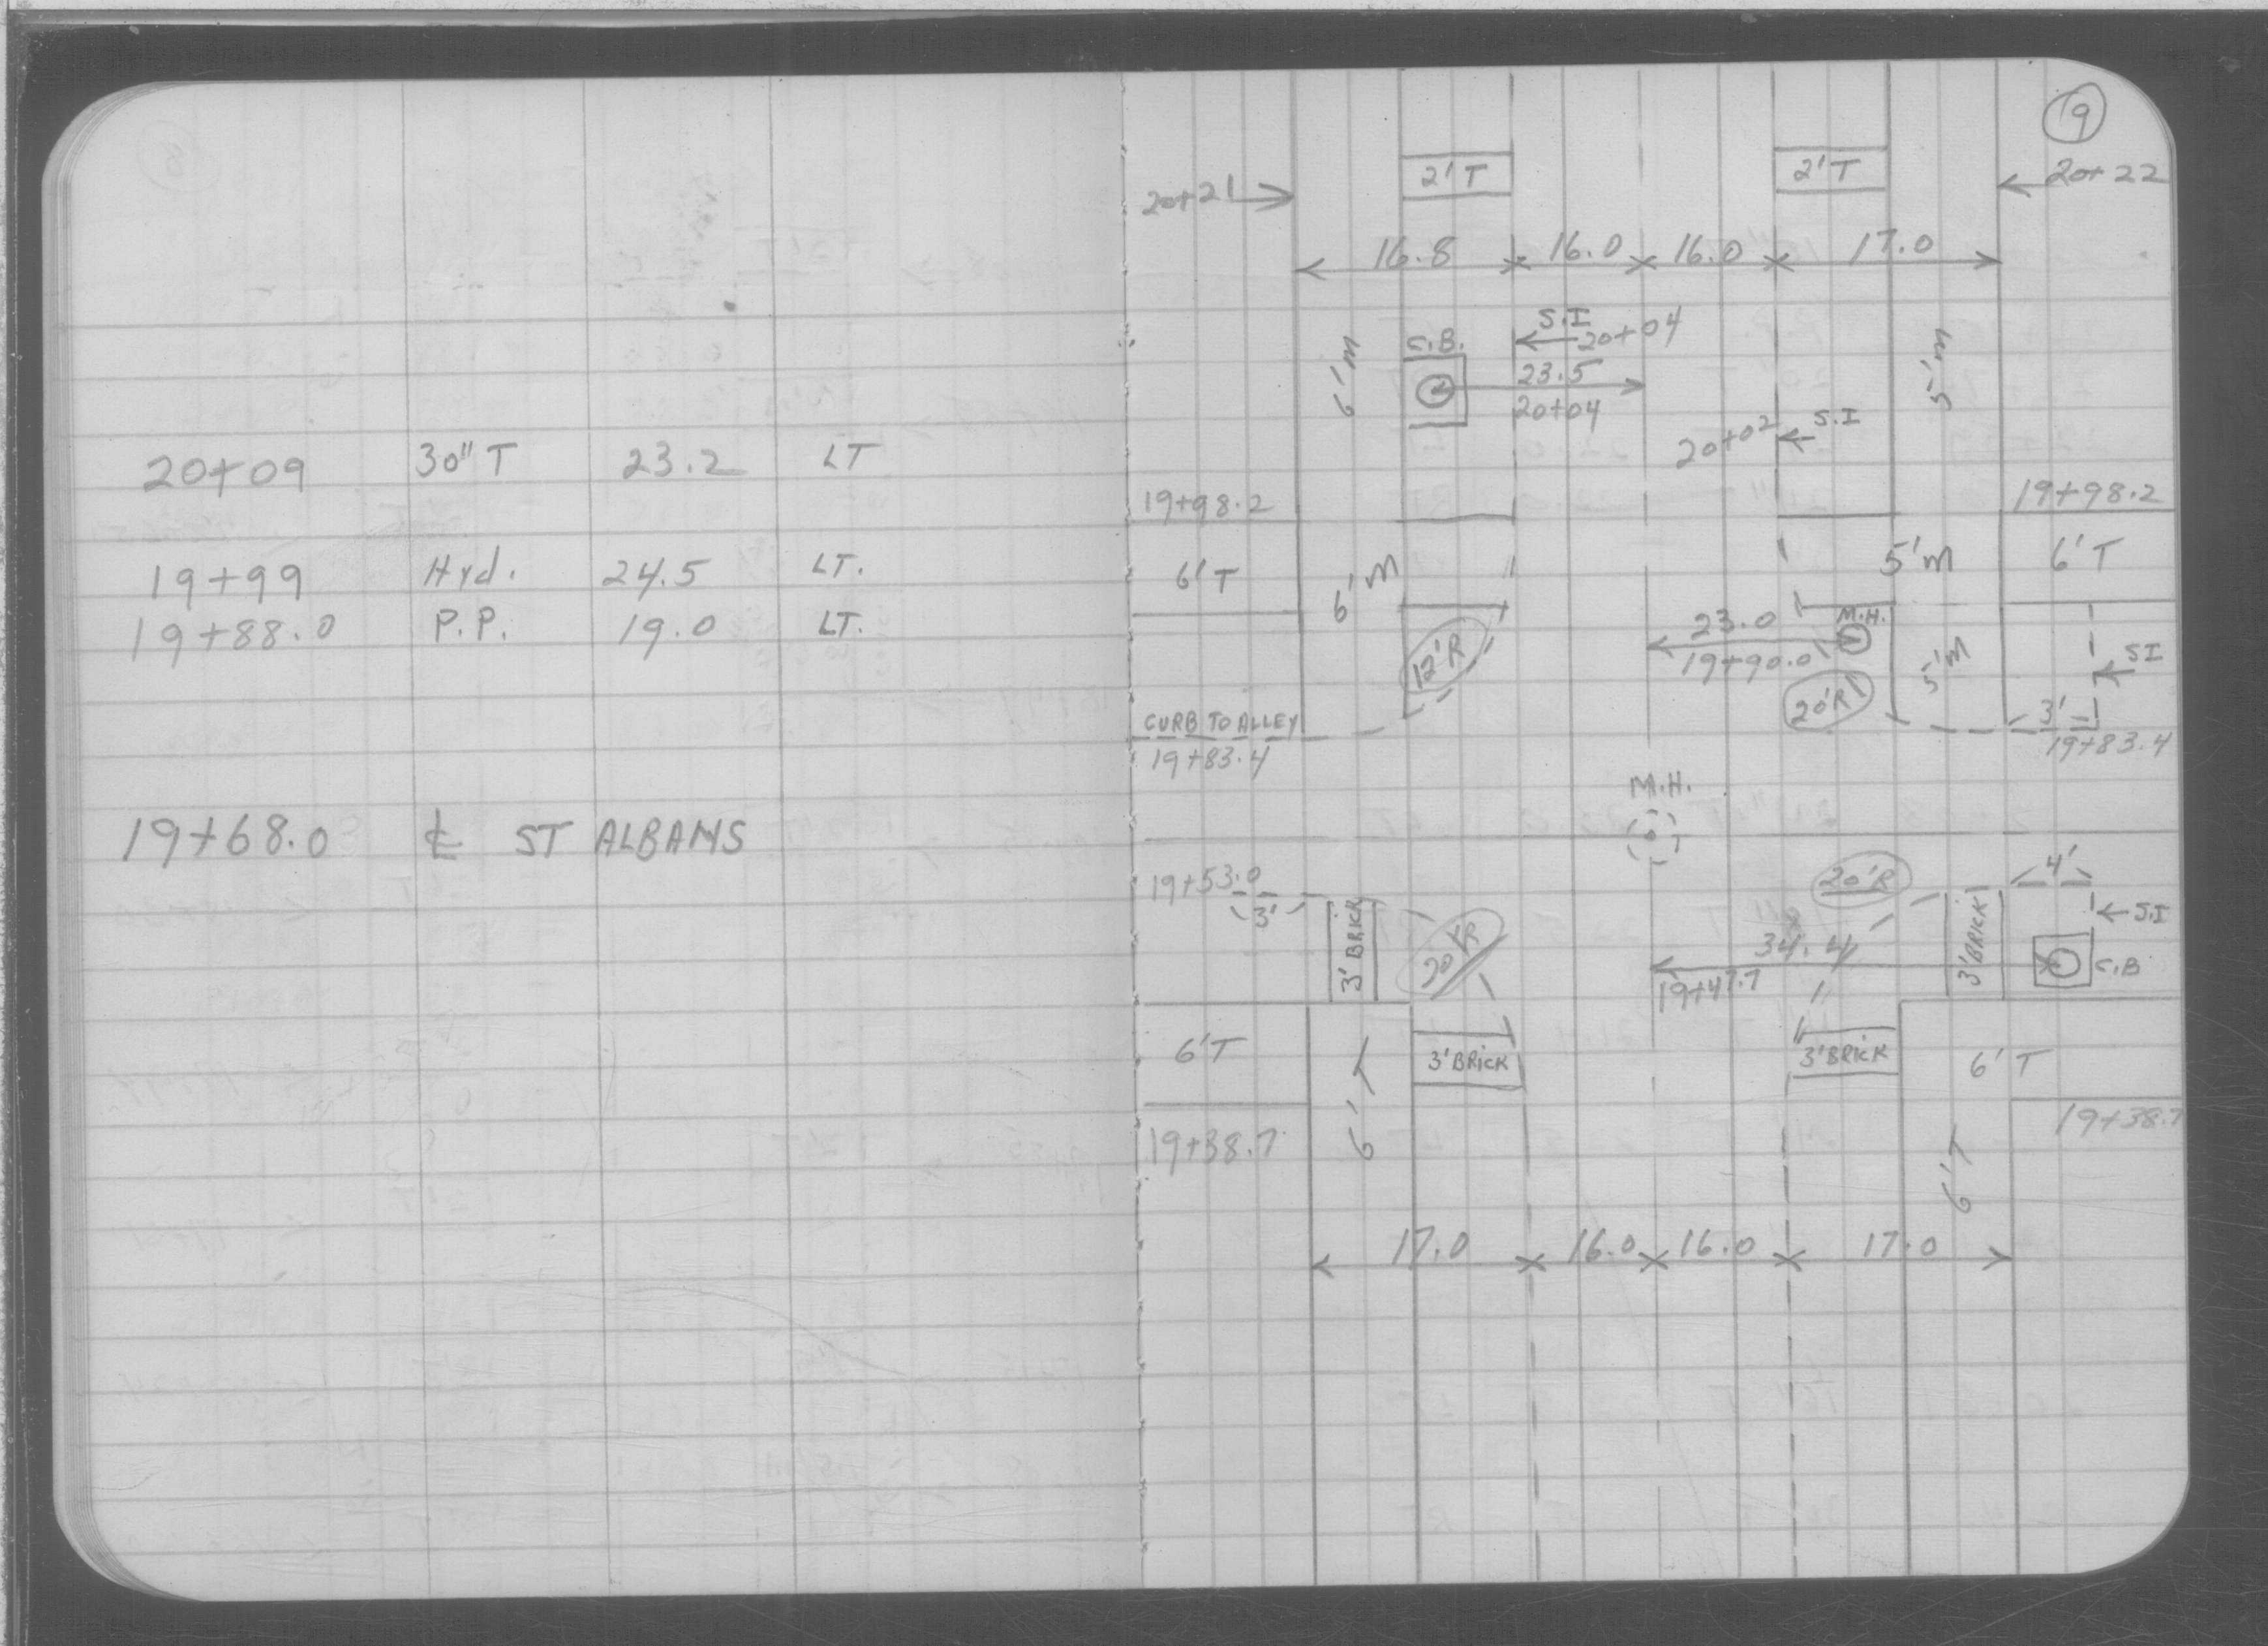 20+09 30" T 23.2 LT
19+99 Hyd. 24.5 LT.
19+88.0 P.P. 19.0 LT.
19+68.0 ℄ ST ALBANS
9
2'T 2'T
20+21 20+22
16.8 16.0 16.0 17.0
S.I
20+04
C.B.
6'M 23.5 5'M
20+04
20+02 S.I
19+98.2 19+98.2
6'T 6'M 5'M 6'T
23.0 M.H.
19+90.0
12'R 5'M S I
20'R 3'
CURB TO ALLEY
19+83.4 19+83.4
M.H.
19+53.0 20'R 4'
3' 3'BRICK 20'R 3'BRICK S.I
34.4
19+47.7 C.B
6'T 6'T 3'BRICK 3'BRICK 6'T
19+38.7 6'T 19+38.7
17.0 16.0 16.0 17.0